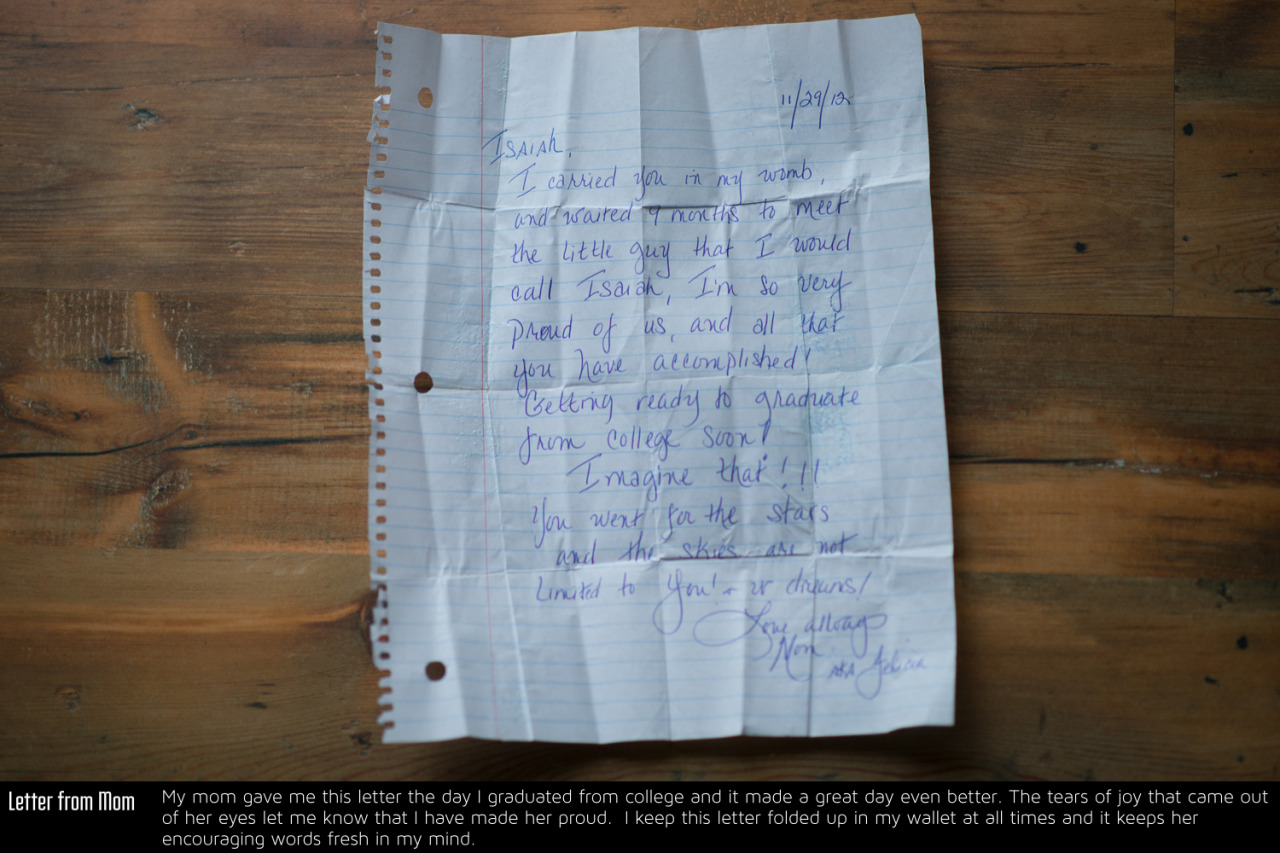 11/29/12
Isaiah,
I carried you in my womb,
and waited 9 months to meet
the little guy that I would
call Isaiah, I'm so very
proud of us, and all that
you have accomplished!
Getting ready to graduate
from college soon!
Imagine that!!!
You went for the stars
and the skies are not
Limited to you! + ur dreams!
Love always
Mom
AKA Felicia
Letter from Mom
My mom gave me this letter the day I graduated from college and it made a great day even better. The tears of joy that came out
of her eyes let me know that I have made her proud. I keep this letter folded up in my wallet at all times and it keeps her
encouraging words fresh in my mind.